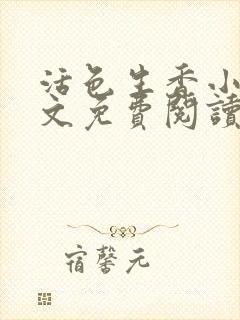 活色生香小
文免費閱讀
宿馨元